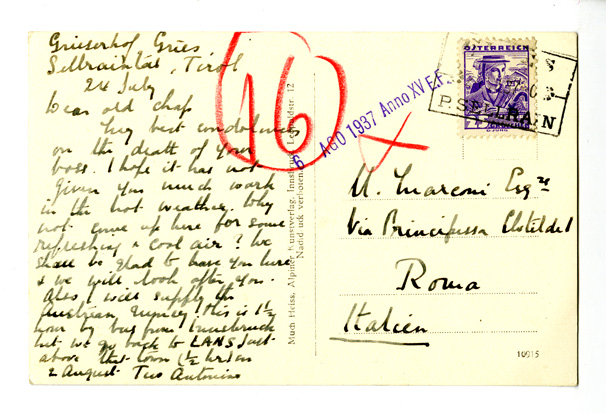 Grieserhof, Gries
Sellraintal, Tirol
24 July
Dear old chap
My best condolences
on the death of your
boss. I hope it has not
given you much work
in the hot weather. Why
not come up here for some
refreshing & cool air! We
shall be glad to have you here
& we will look after you.
Also I will supply the
Austrian money! This is 1½
hour by bus from Innsbruck
but we go back to LANS just
above that town (½ hr) on
2 August. Tuo Antonino
16
6 AGO 1937 Anno XV E.F.
Much Heiss, Alpiner Kunstverlag, Innsbruck, Leopoldstr. 12
verboten.
ÖSTERREICH
A. Marconi Esqre
Via Principessa Clotilde 1
Roma
Italien
10915